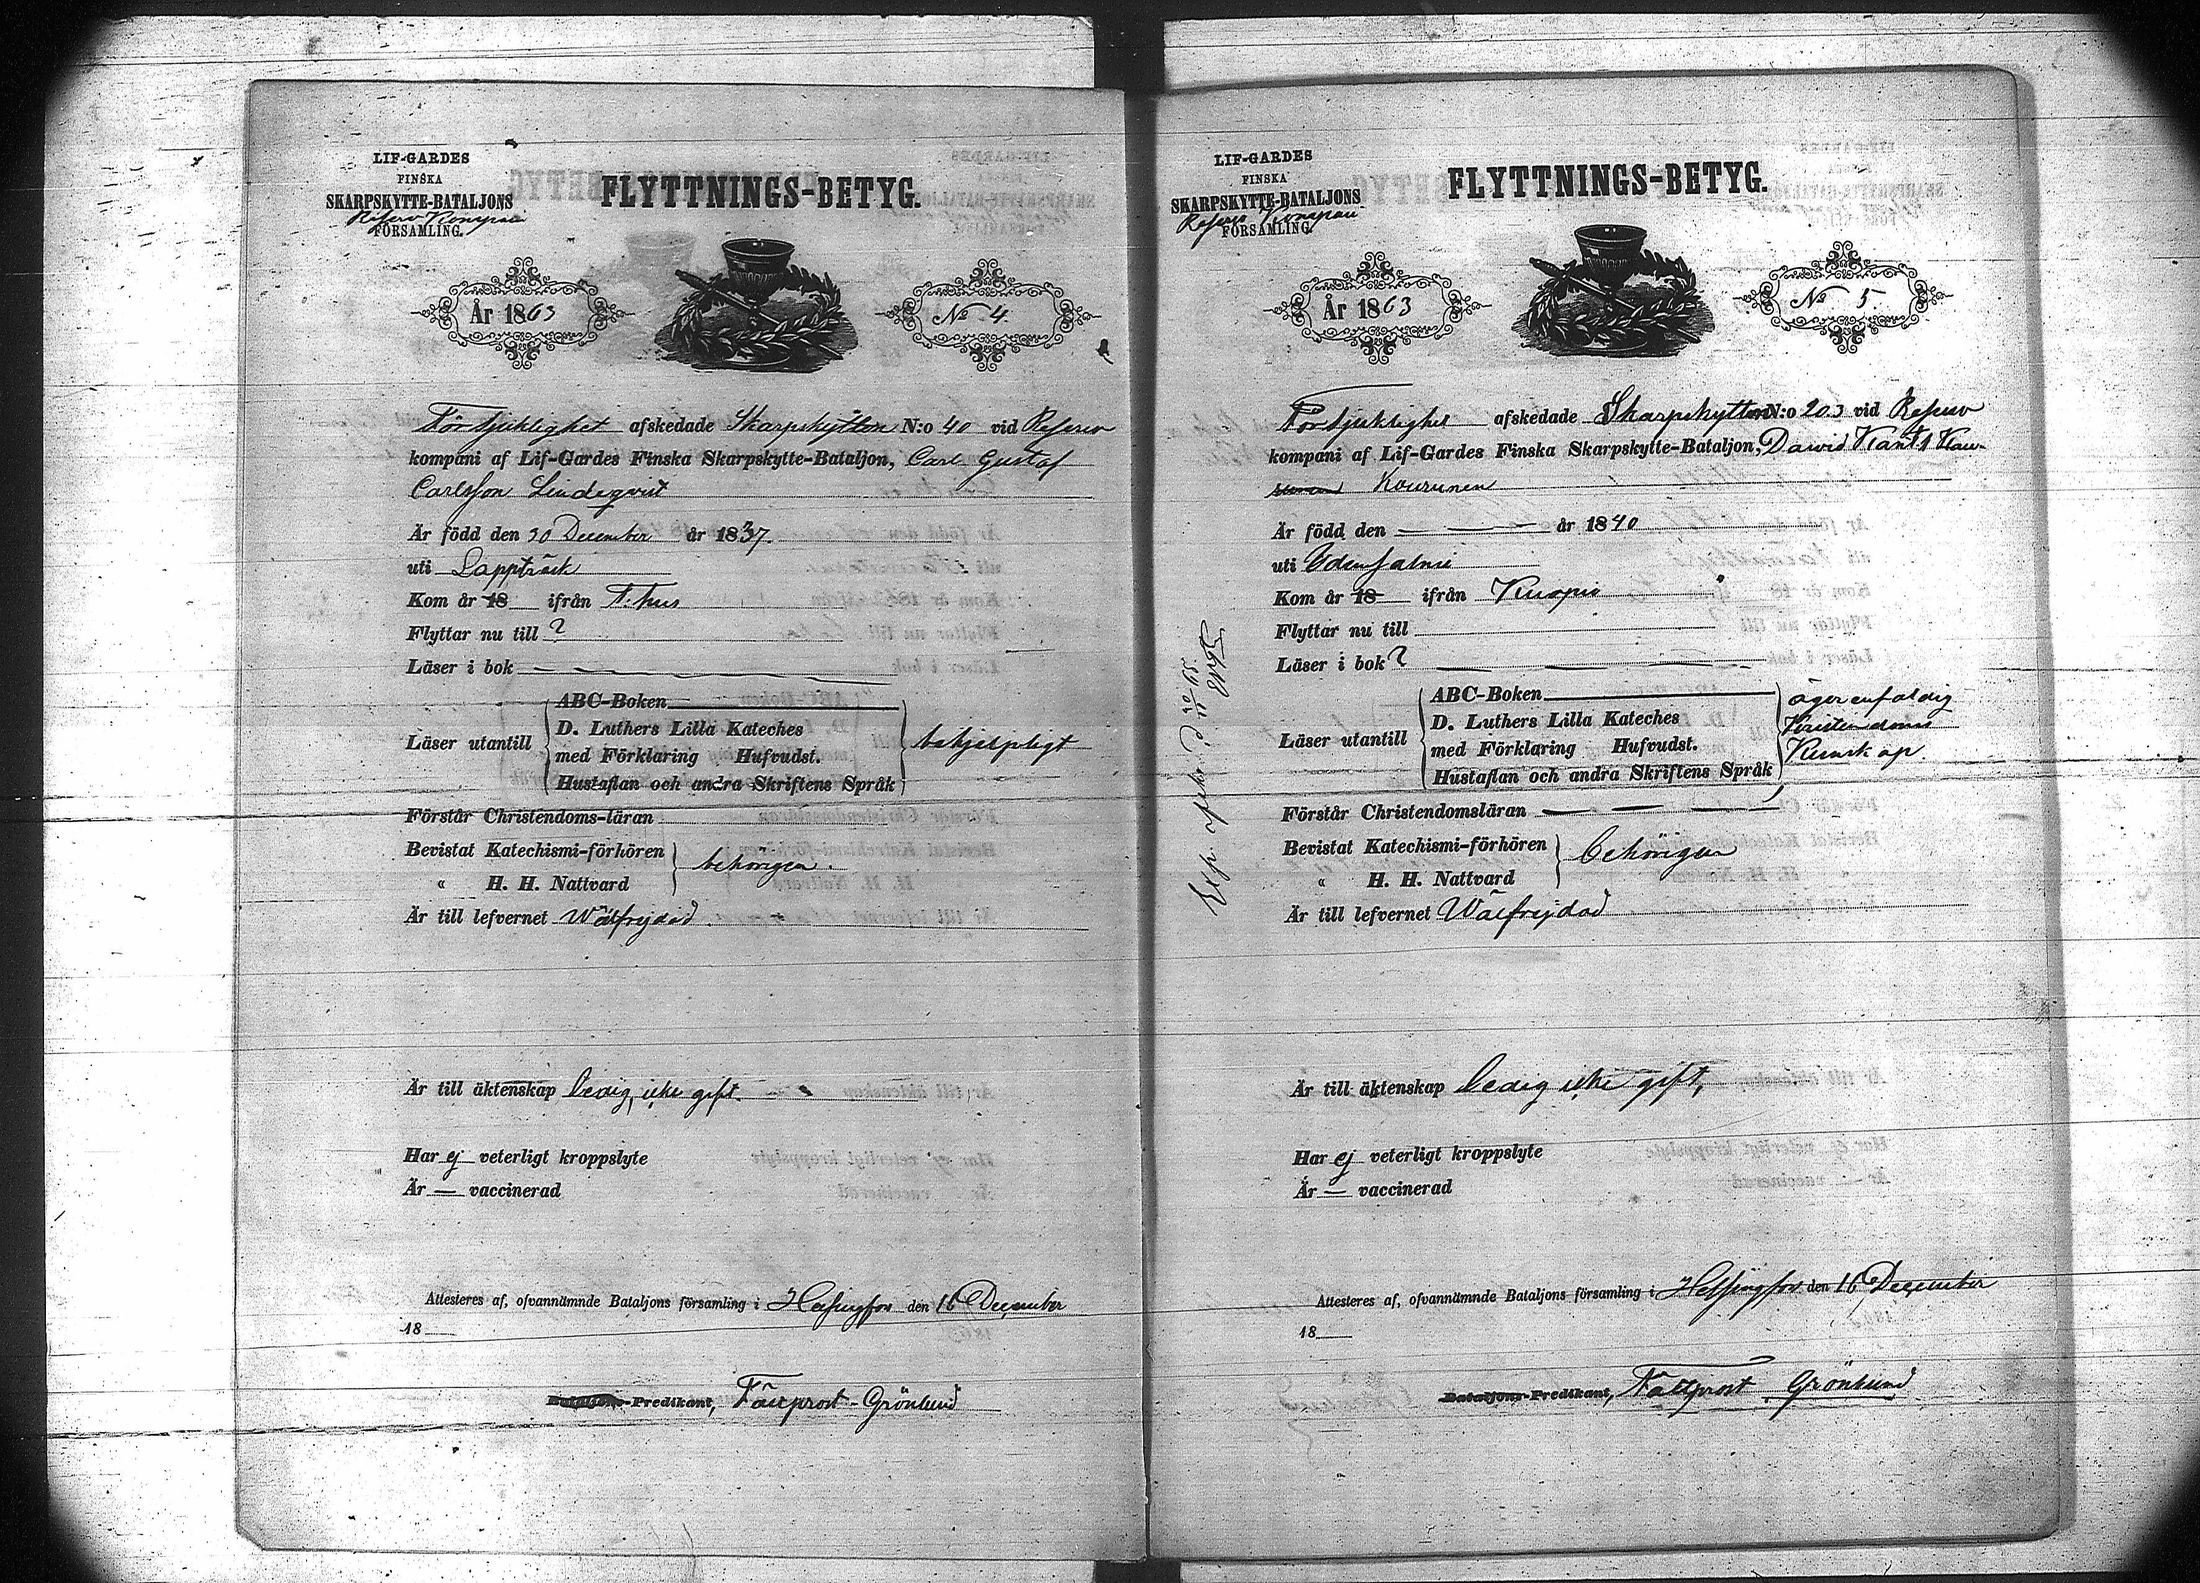 LIF-GARDES
FINSKA
SKARPSKYTTE-BATALJONS
Reserv Kompani
FÖRSAMLING.
FLYTTNINGS-BETYG.
År 1863
No 4.
afskedade Skarpskytten N:o 40 vid Reserv
kompani af Lif-Gardes Finska Skarpskytte-Bataljon, Carl Gustaf
Carlsson Lindeqvist
Är född den 30 December år 1837.
uti Lappträsk
Kom år 18 ifrån T:hus
Flyttar nu till ?
Läser i bok
Läser utantill
ABC-Boken
D. Luthers Lilla Kateches
med Förklaring Hufvudst.
Hustaflan och andra Skriftens Språk
behjelpligt
Förstår Christendoms-läran
Bevistat Katechismi-förhören
" H. H. Nattvard
behörigen.
Är till lefvernet Wälfrejdad.
Är till äktenskap ledig, icke gift.
Har ej veterligt kroppslyte
Är — vaccinerad
Attesteres af, ofvannämnde Bataljons församling i Helsingfors den 16 December
18
Bataljons-Predikant, Fältprost Grönlund
LIF-GARDES
FINSKA
SKARPSKYTTE-BATALJONS
Reserv Kompani
FÖRSAMLING.
FLYTTNINGS-BETYG.
År 1863
No 5
afskedade Skarpskytten N:o 203 vid Reserv
kompani af Lif-Gardes Finska Skarpskytte-Bataljon, David
Kourunen
Är född den — — — år 1840
uti Idensalmi
Kom år 18 ifrån Kuopio
Flyttar nu till
Läser i bok ?
Läser utantill
ABC-Boken
D. Luthers Lilla Kateches
med Förklaring Hufvudst.
Hustaflan och andra Skriftens Språk
äger enfaldig
Kristendoms
Kunskap.
Förstår Christendomsläran
Bevistat Katechismi-förhören
" H. H. Nattvard
behörigen
Är till lefvernet Wälfrejdad
Är till äktenskap ledig icke gift,
Har ej veterligt kroppslyte
Är — vaccinerad
Attesteres af, ofvannämnde Bataljons församling i Helsingfors den 16 December
18
Bataljons-Predikant, Fältprost Grönlund